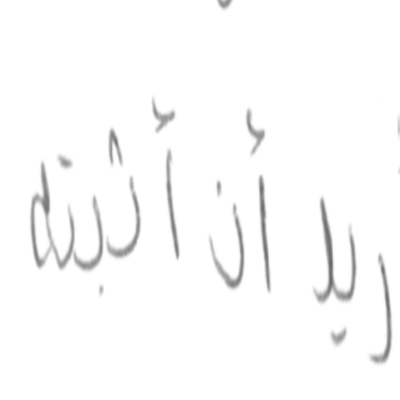 أريد أن أثبته